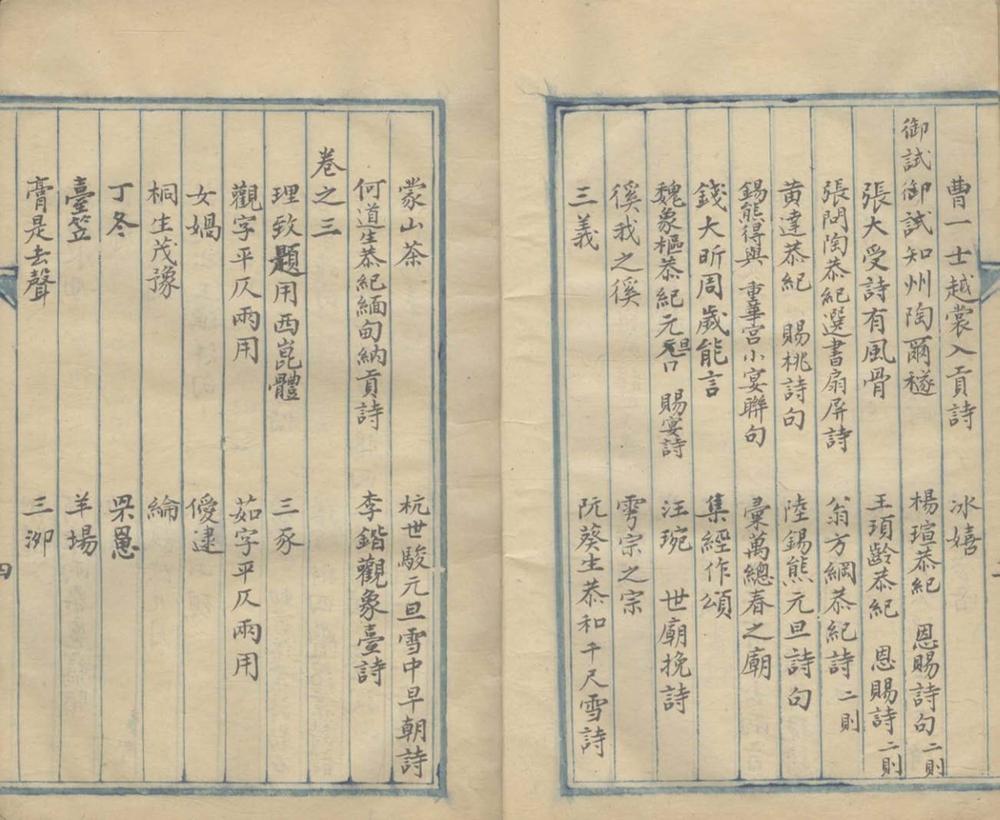 曹一士越裳入貢詩　冰嬉
御試御試知州陶爾穟　楊瑄恭紀　恩賜詩句二則
張大受詩有風骨　王頊齡恭紀　恩賜詩二則
張問陶恭紀選書扇屏詩　翁方綱恭紀詩二則
黄達恭紀　賜桃詩句　陸錫熊元旦詩句
錫熊得與　重華宮小宴聯句　彙萬總春之廟
錢大昕周歲能言　集經作頌
魏象樞恭紀元旦　賜宴詩　汪琬　世廟挽詩
徯我之徯　雩宗之宗
三義　阮葵生恭和千尺雪詩
蒙山茶　杭世駿元旦雪中早朝詩
何道生恭紀緬甸納貢詩　李鍇觀象臺詩
卷之三
理致題用西崑體　三豕
觀字平仄兩用　茹字平仄兩用
女媧　僾逮
桐生茂豫　綸
丁冬　罘罳
臺笠　羊場
膏是去聲　三泖
四